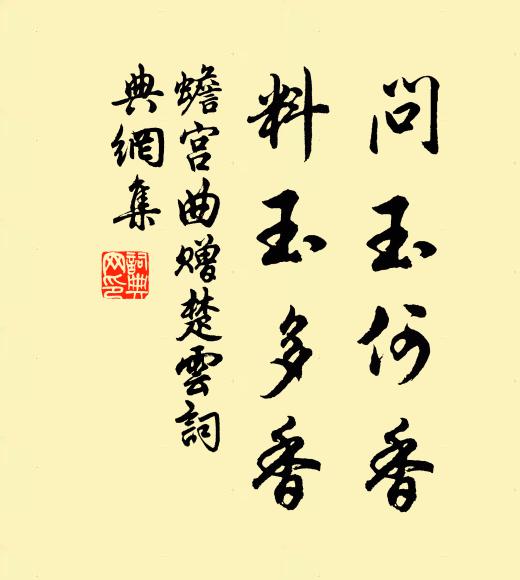 問玉何香
料玉多香
蟾宮曲贈楚雲詞
典網集
詞典網印